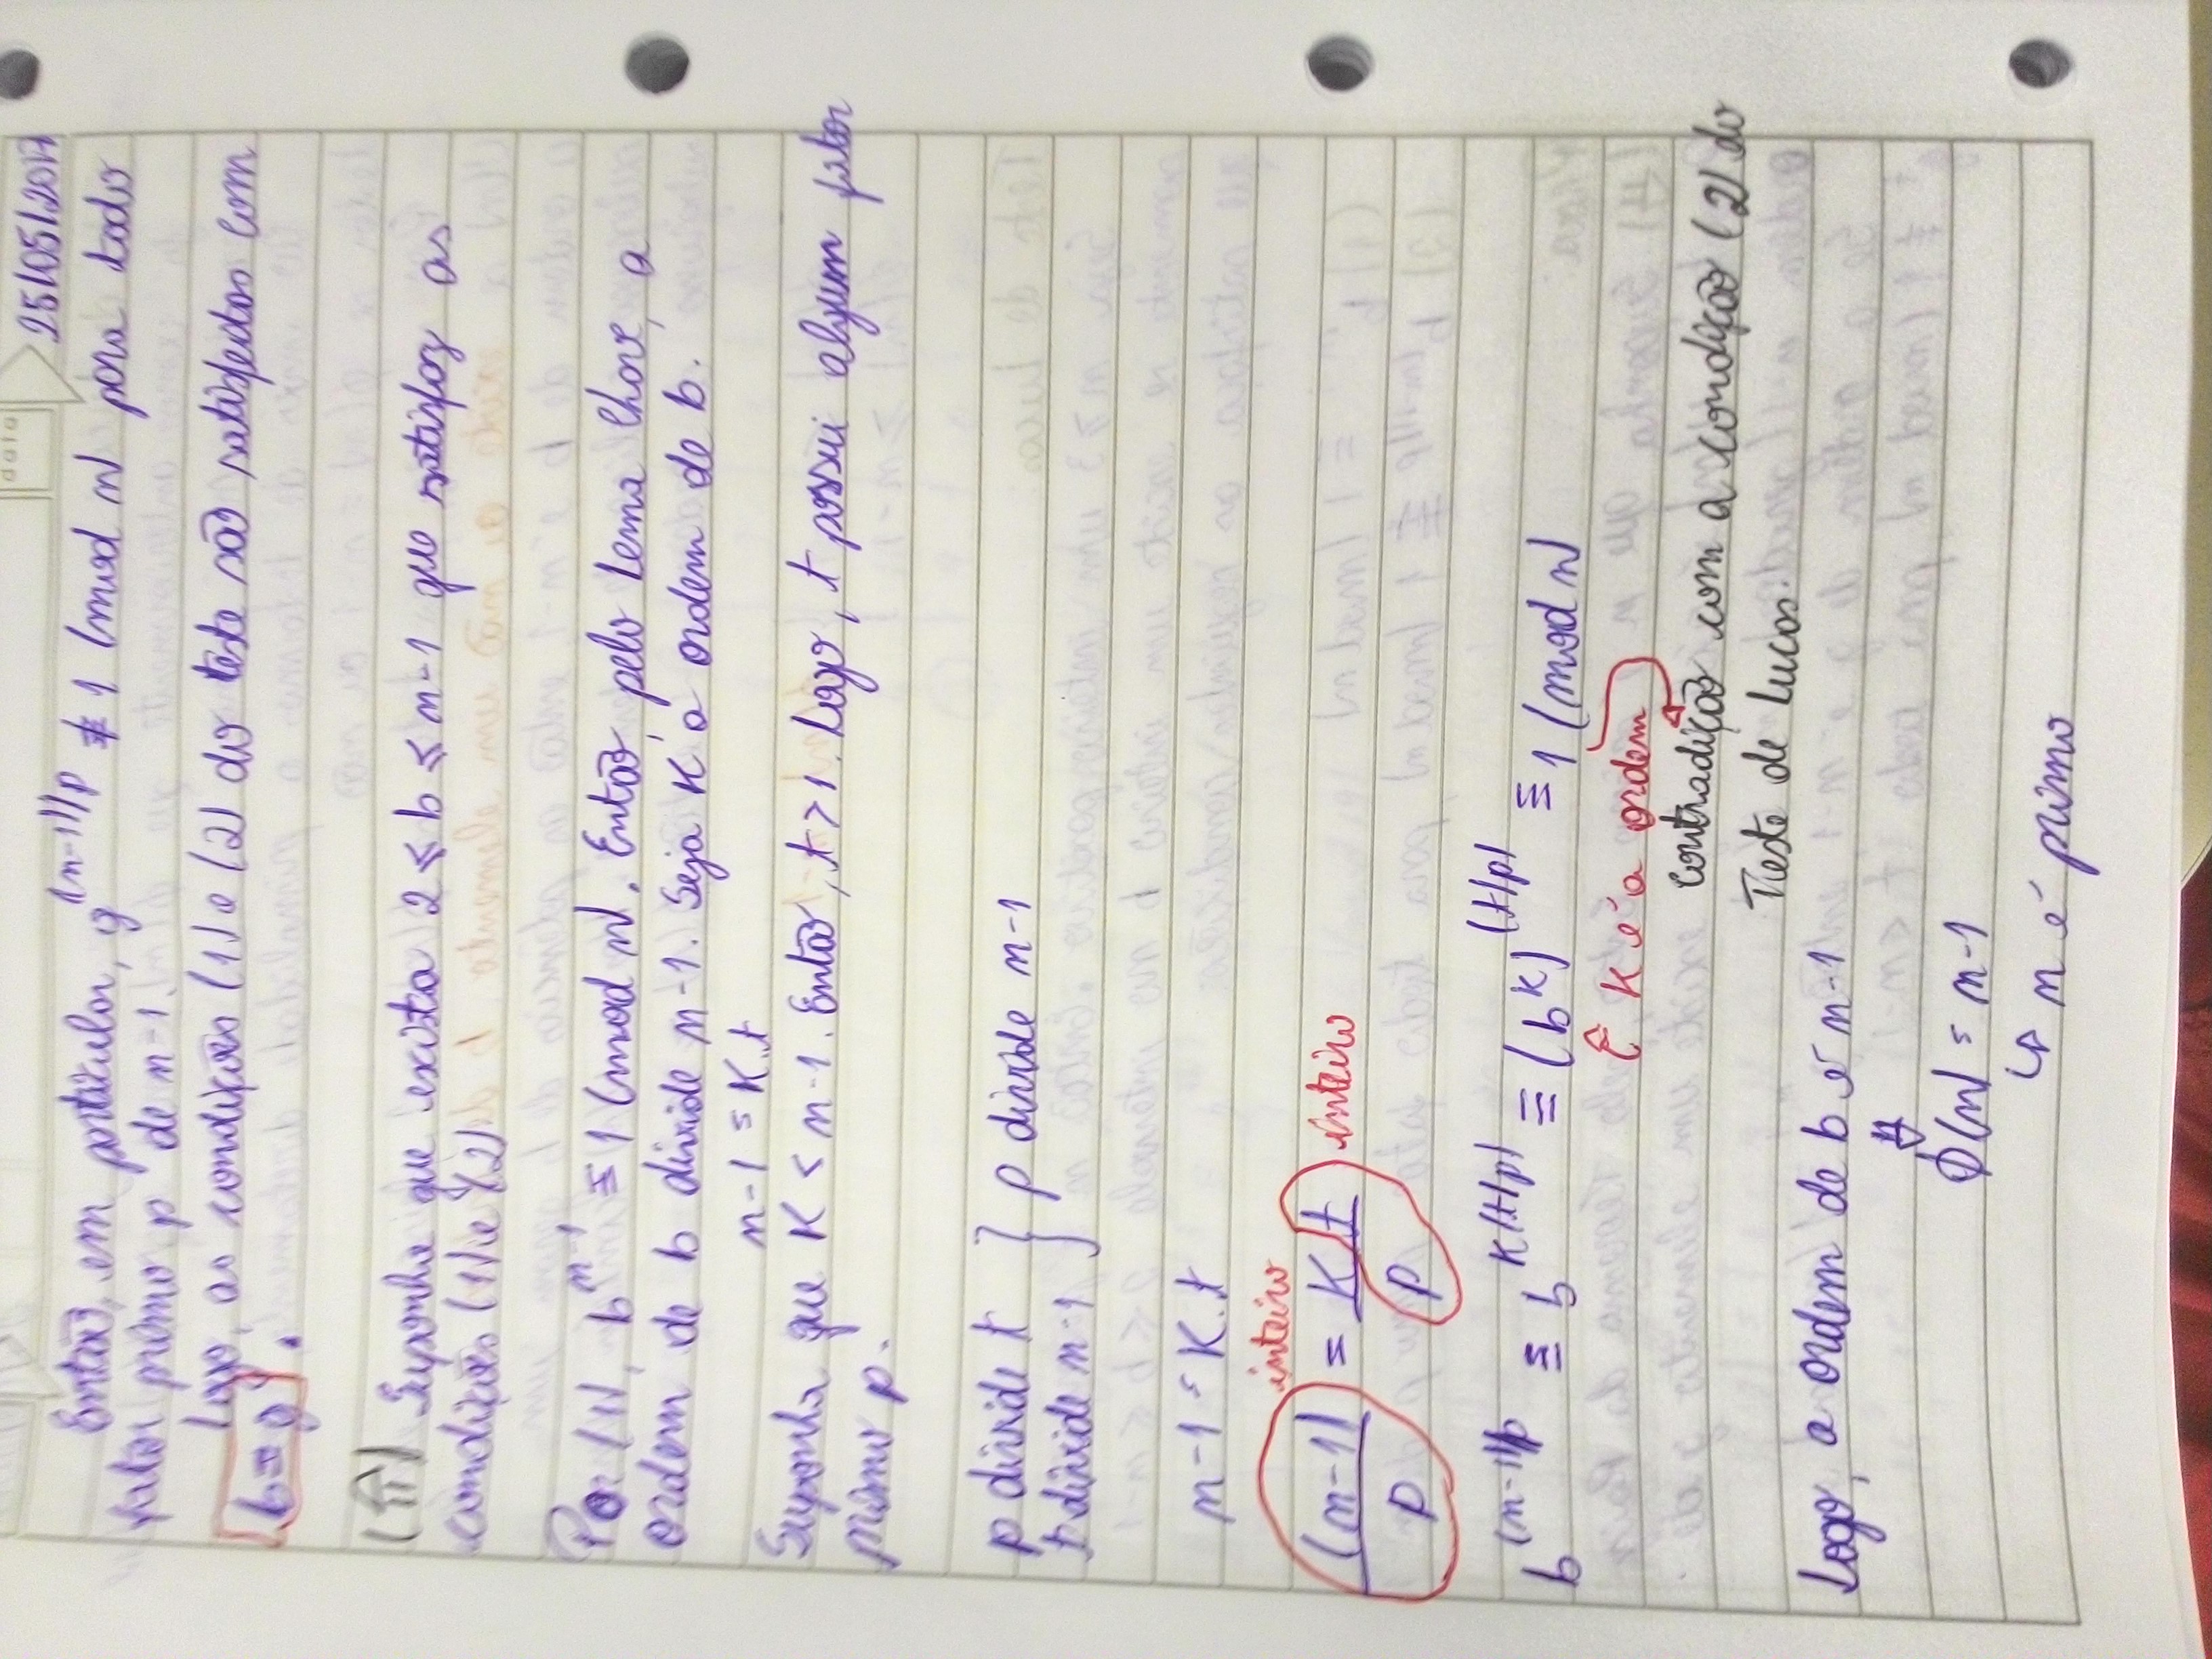 data 25/05/2017
Então, em particular, g^(n-1)/p ≢ 1 (mod n) para todo
fator primo p de n-1.
Logo, as condições (1) e (2) do teste são satisfeitas com
b = g.
(⇑) Suponha que exista 2 ≤ b ≤ n-1 que satisfaz as
condições (1) e (2).
Por (1), b^n-1 ≡ 1 (mod n). Então, pelo Lema Chave, a
ordem de b divide n-1. Seja K a ordem de b.
n-1 = K.t
Suponha que K < n-1. Então, t > 1. Logo, t possui algum fator
primo p.
p divide t } p divide n-1
t divide n-1
n-1 = K.t
inteiro
(n-1)/p = Kt/p inteiro
b^(n-1)/p ≡ b^K(t/p) ≡ (b^K)^(t/p) ≡ 1 (mod n)
↑ K é a ordem
contradição com a condição (2) do
Teste de Lucas.
Logo, a ordem de b é n-1
⇓
ϕ(n) = n-1
↳ n é primo